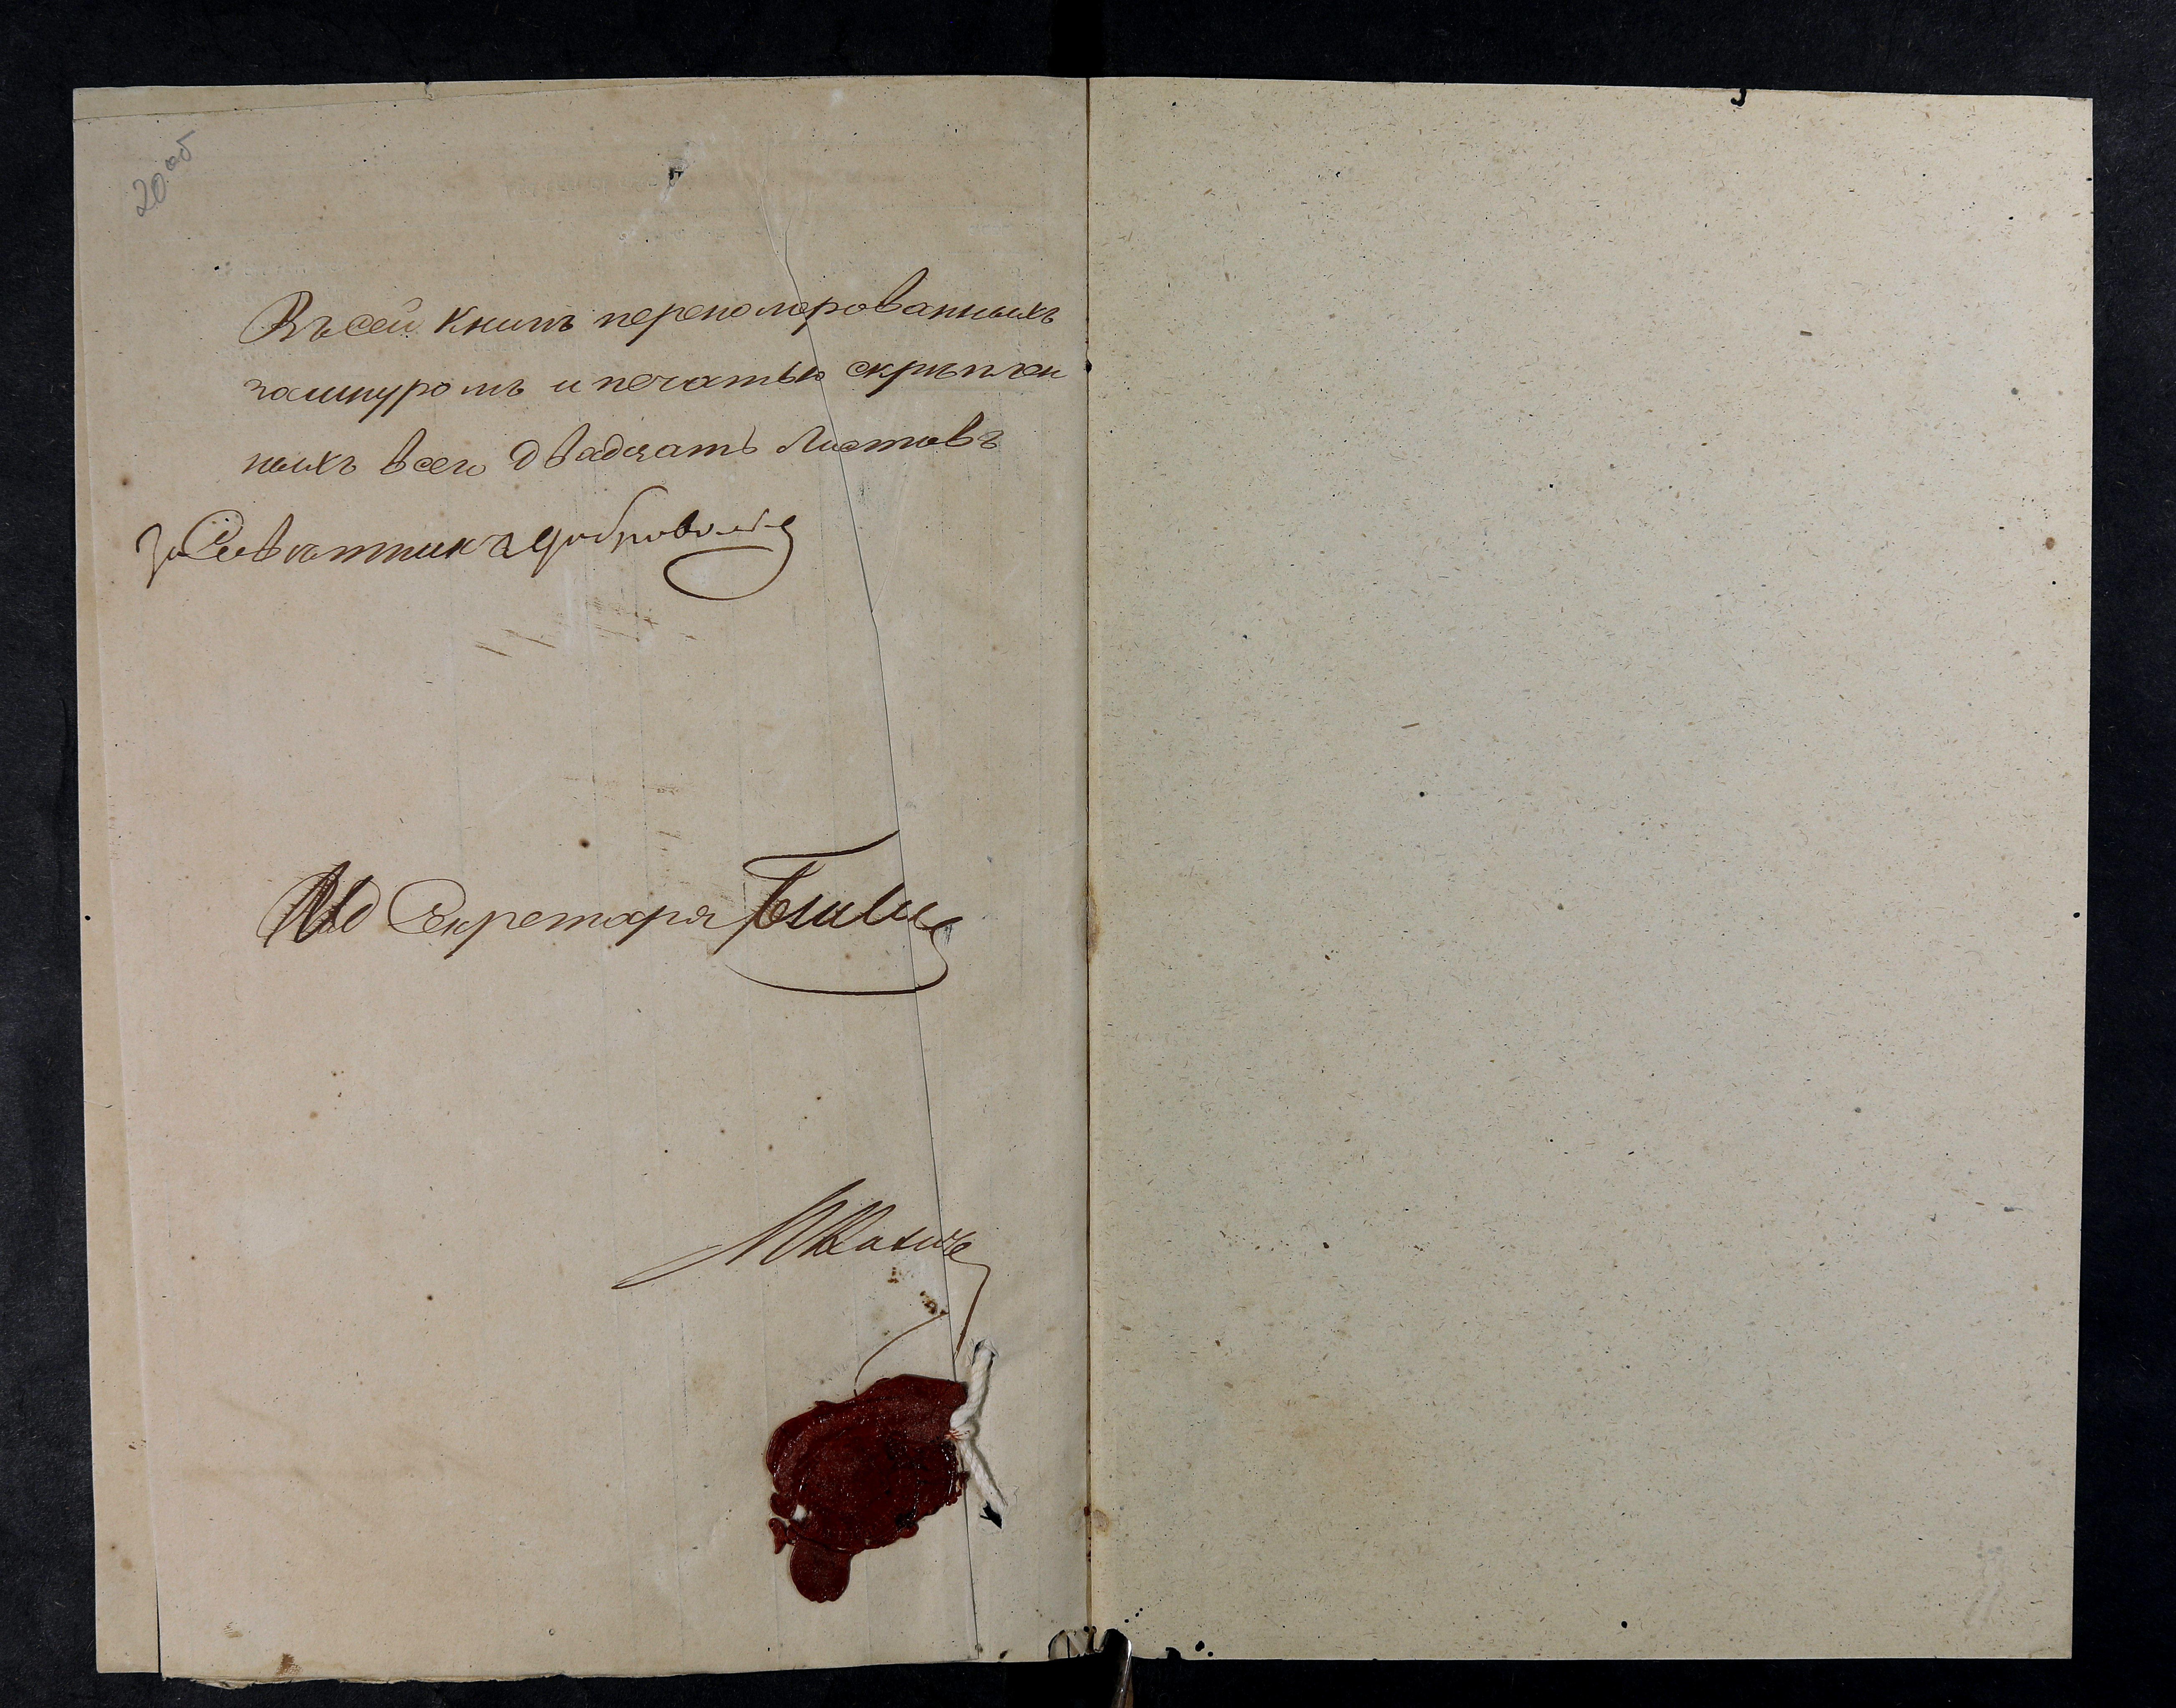 20 об
Въ сей Книгѣ перенолерованныхъ
зашнуромъ и печатью скрѣплен
ныхъ всего двадцать Листовъ
За Совѣтника Доброволь
ИД Секретаря